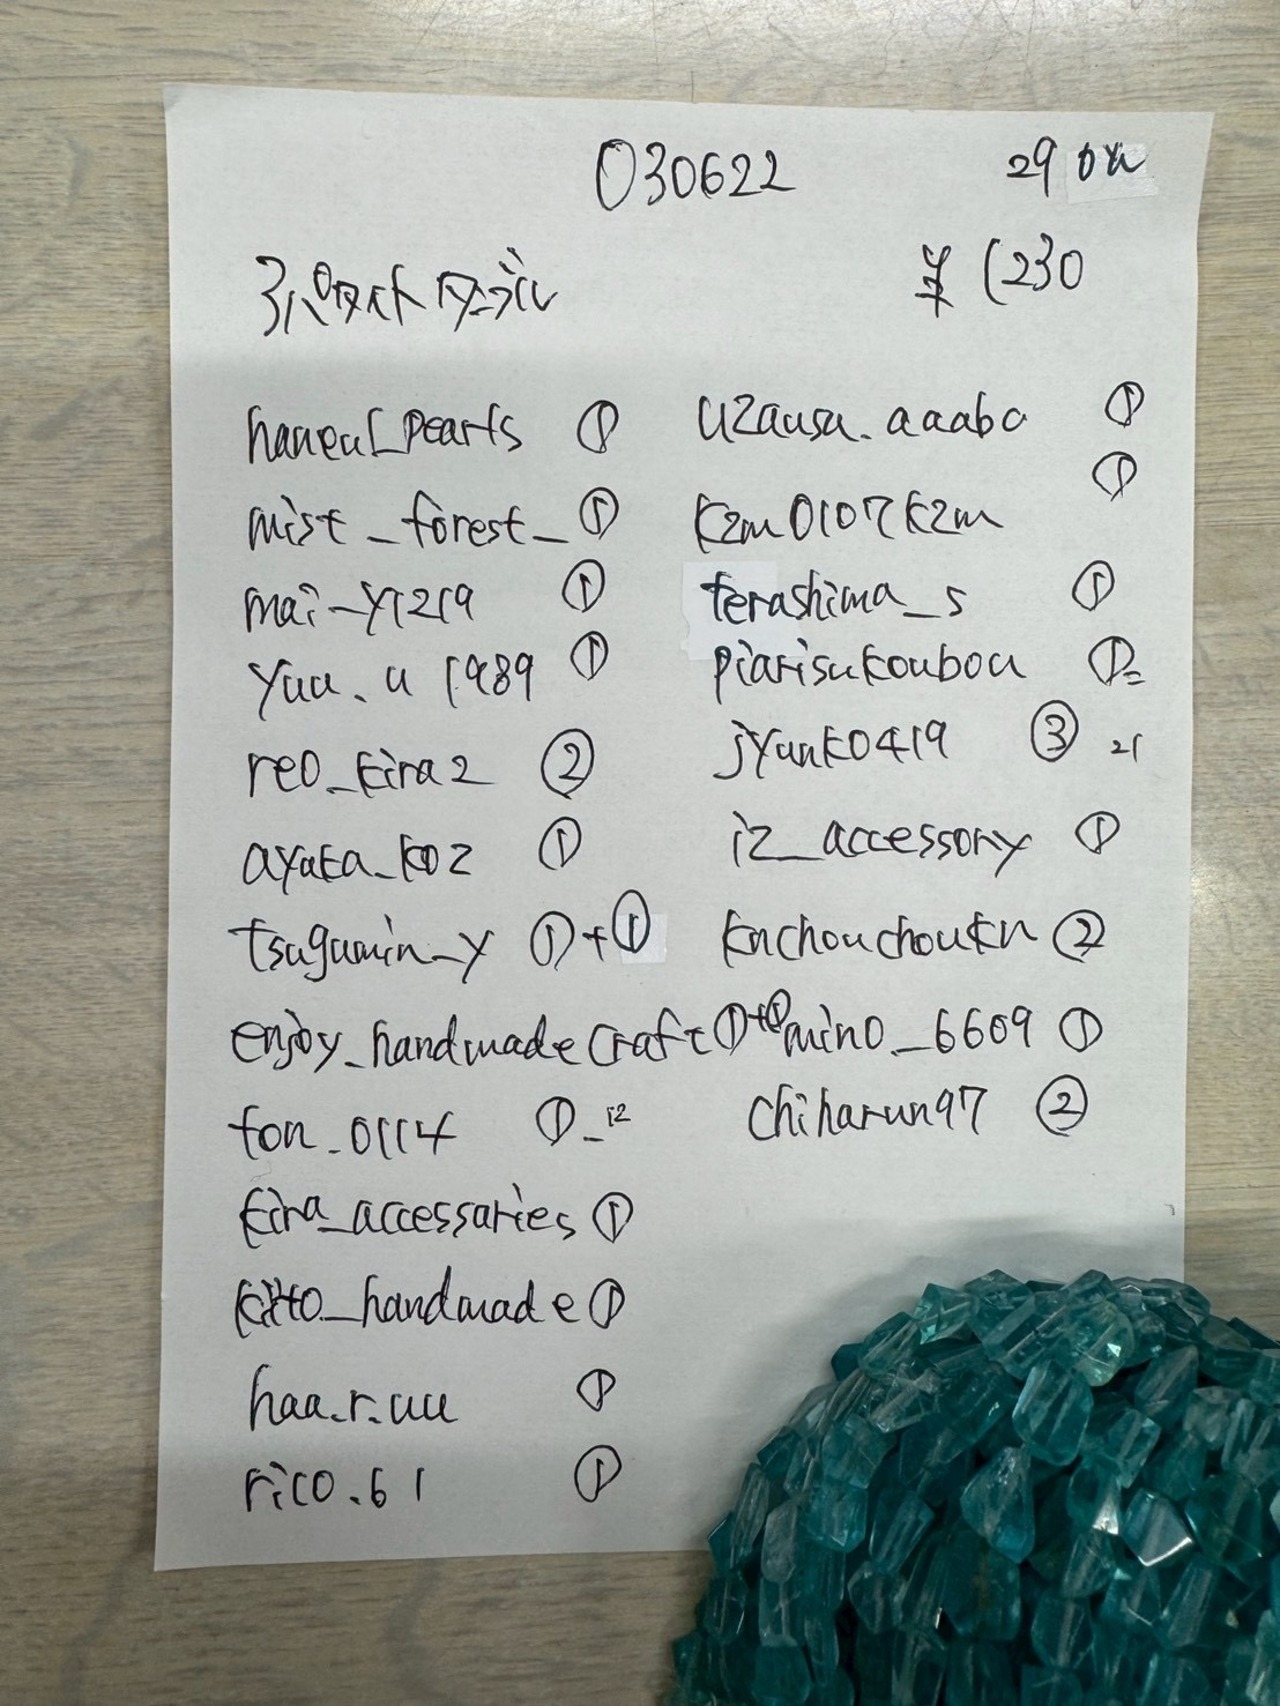 030622
¥1230
haneul_pearls ①
mist_forest_ ①
mai_y1219 ①
yuu.u1989 ①
reo_kira2 ②
ayaka_koz ①
tsugumin_y ①+①
enjoy_handmadecraft ①+①
ton_0114 ①_12
kira_accessaries ①
kiito_handmade ①
haa.r.uu ①
rico.61 ①
uzausa.aaabo ①
kzm0107kzm ①
terashima_s ①
piarisukoubou ①=
jyunko419 ③ 21
iz_accessory ①
knchouchoukn ②
mino_6609 ①
chiharun97 ②